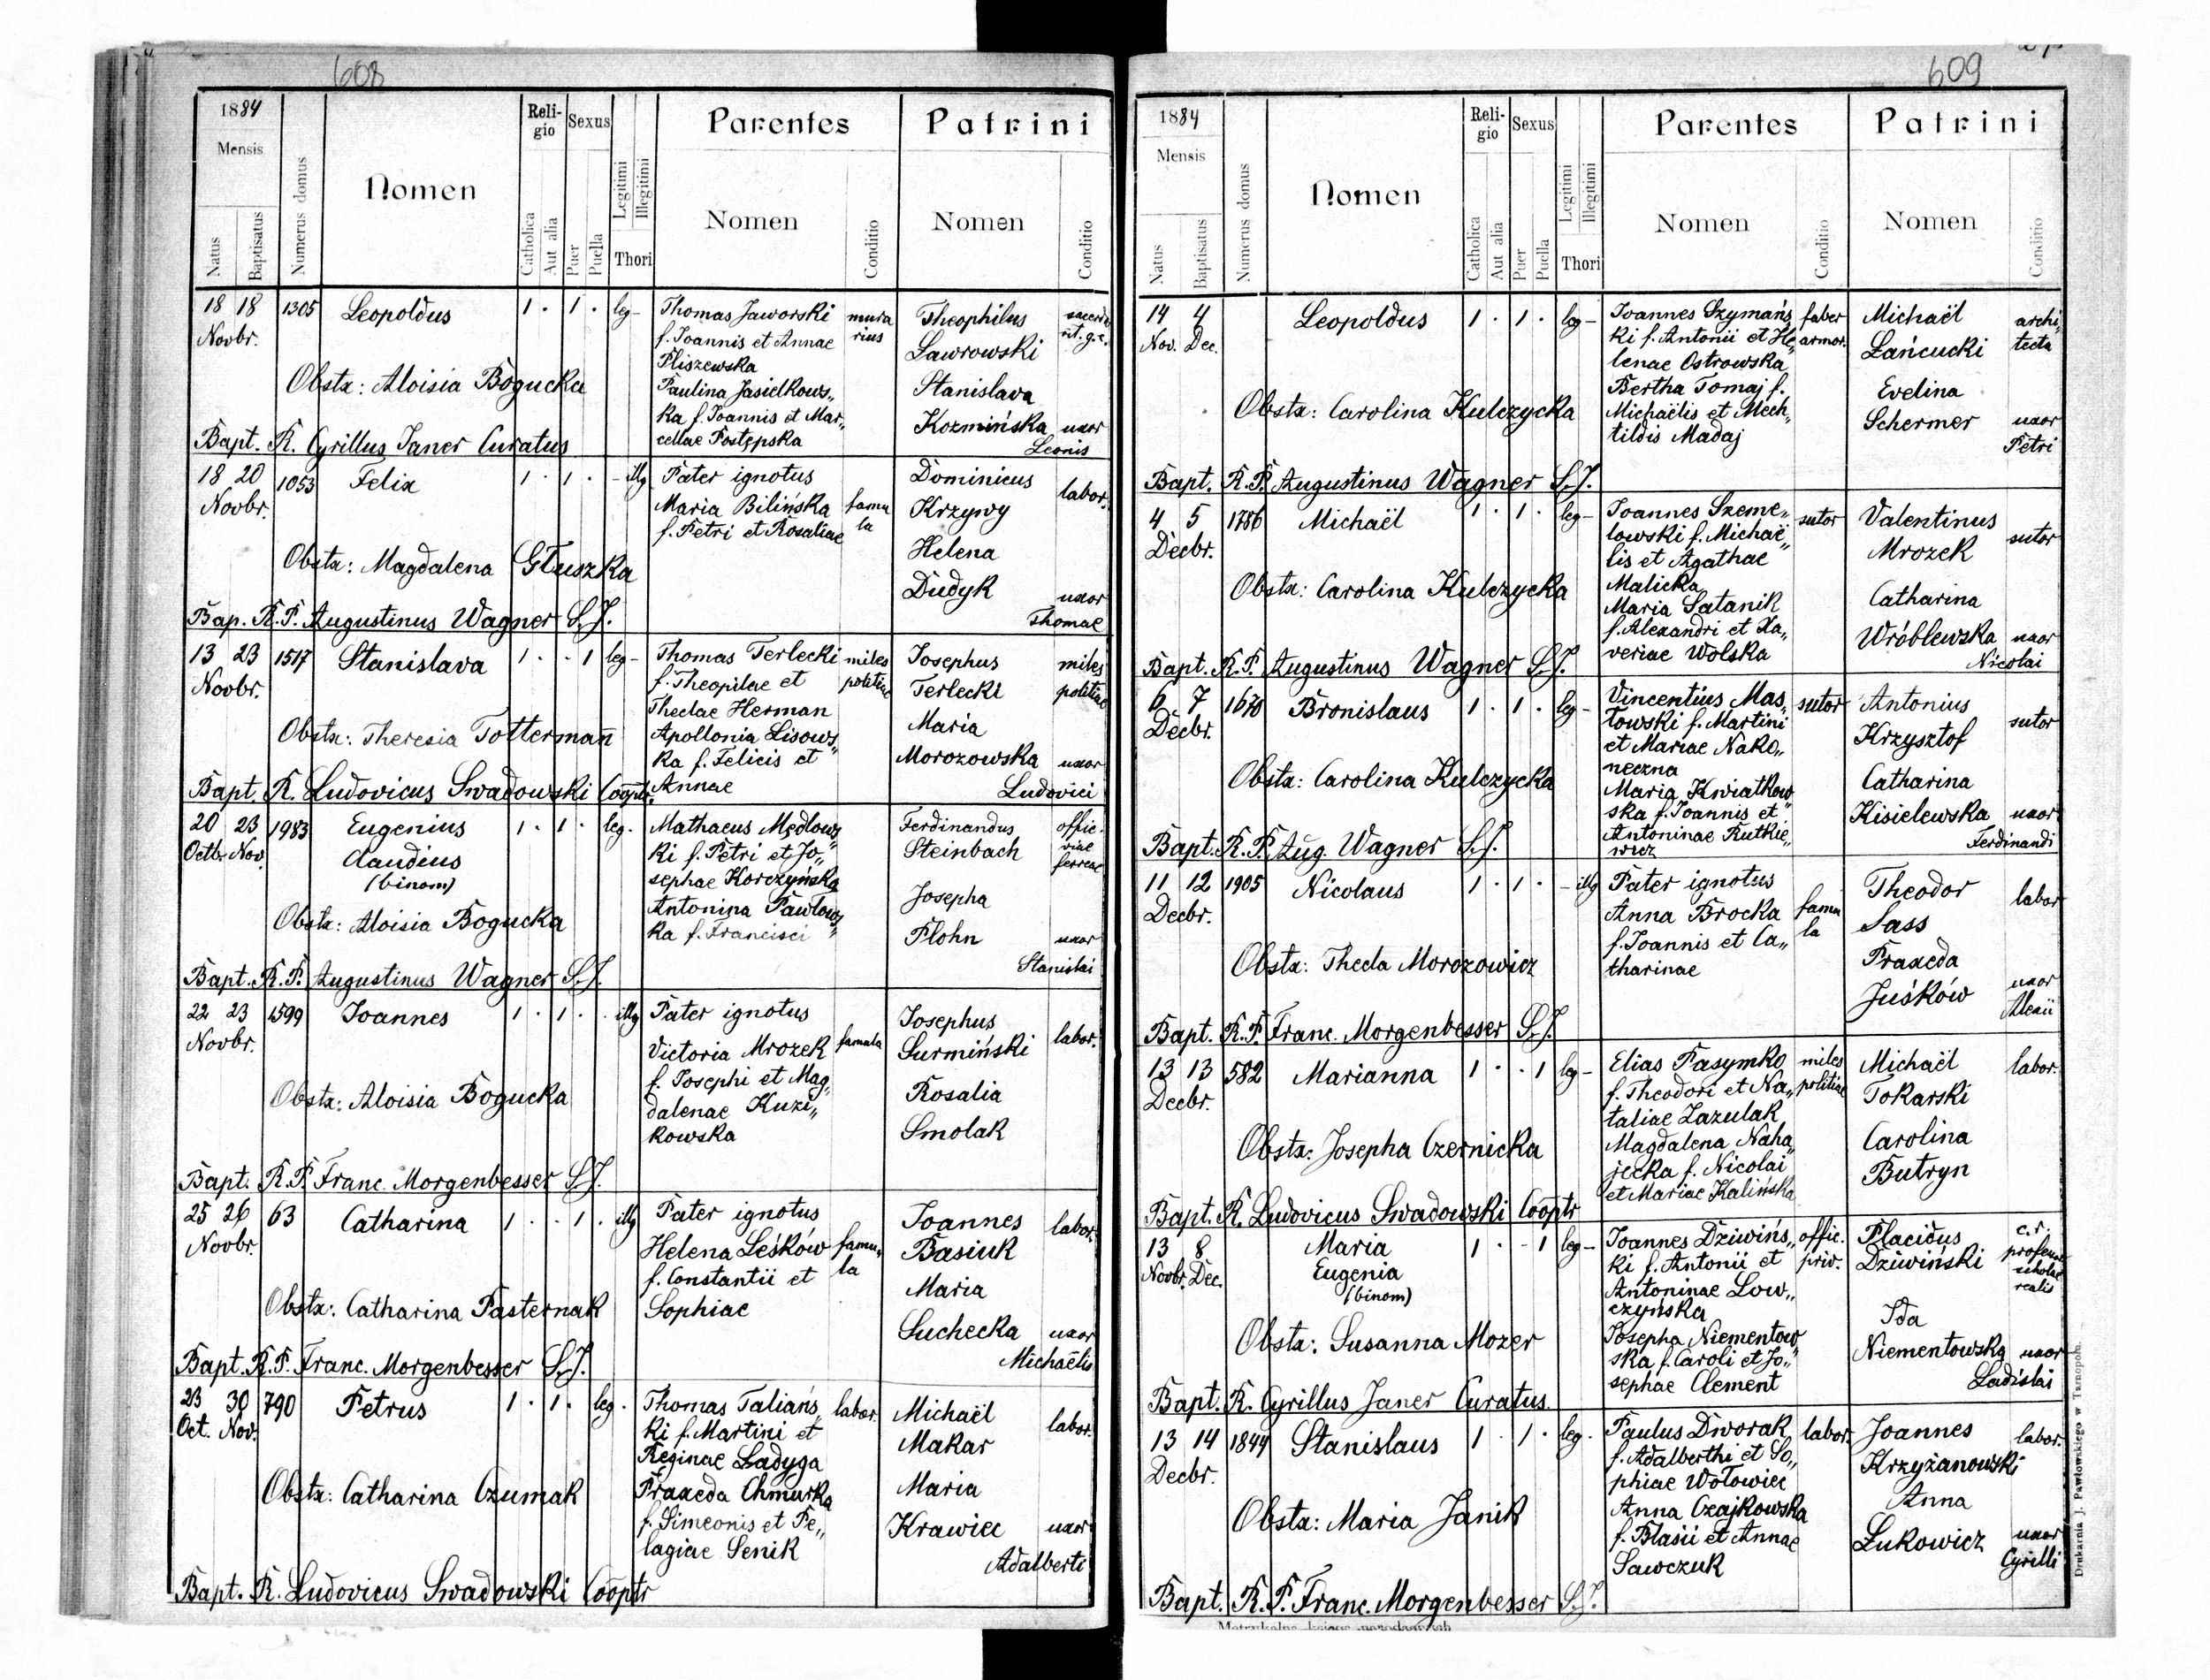 608
1884
Mensis
Natus
Baptisatus
Numerus domus
Nomen
Reli-
gio
Catholica
Aut alia
Sexus
Puer
Puella
Legitimi
Illegitimi
Thori
Parentes
Nomen
Conditio
Patrini
Nomen
Conditio
18 18 1305 Leopoldus 1 · 1 · leg-
Novbr.
Thomas Jaworski
f. Joannis et Annae
Pliszewska
Paulina Jasielkows„
ka f. Joannis et Mar„
cellae Postępska
mura
rius
Theophilus
Ławrowski
Stanislava
Kozmińska uxor
Leonis
Obstx: Aloisia Bogucka
Bapt. R. Cyrillus Janer Curatus
18 20 1053 Felix 1 · 1 · - illg
Novbr.
Pater ignotus
Maria Bilińska
f. Petri et Rosaliae
famu
la
Dominicus
Krzywy
labor.
Helena
Dudyk
uxor
Thomae
Obstx: Magdalena Głuszka
Bap. R.P. Augustinus Wagner S.J.
13 23 1517 Stanislava 1 · · 1 leg-
Novbr.
Thomas Terlecki
f. Theopilae et
Theclae Herman
Apollonia Lisows„
ka f. Felicis et
Annae
miles
politiae
Josephus
Terlecki
miles
politiae
Maria
Morozowska uxor
Ludovici
Obstx: Theresia Totterman
Bapt. R. Ludovicus Swadowski Cooptr.
20 23 1983 Eugenius 1 · 1 · leg.
Octb. Nov.
Claudius
(binom)
Mathaeus Mędlows„
ki f. Petri et Jo„
sephae Korczyńska
Antonina Pawłows„
ka f. Francisci
Ferdinandus
Steinbach
offic.
viae
ferreae
Josepha
Plohn
uxor
Stanislai
Obstx: Aloisia Bogucka
Bapt. R.P. Augustinus Wagner S.J.
22 23 1599 Joannes 1 · 1 · · illg
Novbr.
Pater ignotus
Victoria Mrozek
f. Josephi et Mag„
dalenae Kuzi„
kowska
famula
Josephus
Surmiński
labor.
Rosalia
Smolak
Obstx: Aloisia Bogucka
Bapt. R.P. Franc. Morgenbesser S.J.
25 26 63 Catharina 1 · · 1 · illg
Novbr.
Pater ignotus
Helena Leśków
f. Constantii et
Sophiae
famu„
la
Joannes
Basiuk
labor.
Maria
Suchecka uxor
Michaëlis
Obstx: Catharina Pasternak
Bapt. R.P. Franc. Morgenbesser S.J.
23 30 790 Petrus 1 · 1 · leg.
Oct. Nov.
Thomas Talians„
ki f. Martini et
Reginae Ładyga
Praxeda Chmurka
f. Simeonis et Pe„
lagiae Senik
labor.
Michaël
Makar
labor.
Maria
Krawiec uxor
Adalberti
Obstx: Catharina Czumak
Bapt. R. Ludovicus Swadowski Cooptr
609
1884
Mensis
Natus
Baptisatus
Numerus domus
Nomen
Reli-
gio
Catholica
Aut alia
Sexus
Puer
Puella
Legitimi
Illegitimi
Thori
Parentes
Nomen
Conditio
Patrini
Nomen
Conditio
14 4 Leopoldus 1 · 1 · leg-
Nov. Dec.
Joannes Szymańs„
ki f. Antonii et He„
lenae Ostrowska
Bertha Tomaj f.
Michaëlis et Mech„
tildis Madaj
faber
armor.
Michaël
Łańcucki
archi„
tecta
Evelina
Schermer uxor
Petri
Obstx: Carolina Kulczycka
Bapt. R.P. Augustinus Wagner S.J.
4 5 1786 Michaël 1 · 1 · leg-
Decbr.
Joannes Szeme„
lowski f. Michaë„
lis et Agathae
Malicka
Maria Satanik
f. Alexandri et Xa„
veriae Wolska
sutor
Valentinus
Mrozek
sutor
Catharina
Wróblewska uxor
Nicolai
Obstx: Carolina Kulczycka
Bapt. R.P. Augustinus Wagner S.J.
6 7 1670 Bronislaus 1 · 1 · leg-
Decbr.
Vincentius Mas„
łowski f. Martini
et Mariae Nako„
neczna
Maria Kwiatkow„
ska f. Joannis et
Antoninae Rutkie„
wicz
sutor
Antonius
Krzysztof
sutor
Catharina
Kisielewska uxor
Ferdinandi
Obstx: Carolina Kulczycka
Bapt. R.P. Aug. Wagner S.J.
11 12 1905 Nicolaus 1 · 1 · - illg
Decbr.
Pater ignotus
Anna Brocka
f. Joannis et Ca„
tharinae
famu
la
Theodor
Sass
labor
Praxeda
Juśków
uxor
Alexii
Obstx: Thecla Morozowicz
Bapt. R.P. Franc. Morgenbesser S.J.
13 13 582 Marianna 1 · · 1 leg-
Decbr.
Elias Pasymko
f. Theodori et Na„
taliae Zazulak
Magdalena Naha„
jecka f. Nicolai
et Mariae Kalińska
miles
politiae
Michaël
Tokarski
labor.
Carolina
Butryn
Obstx: Josepha Czernicka
Bapt. R. Ludovicus Swadowski Cooptr
13 8 Maria 1 · - 1 leg-
Novbr. Dec.
Eugenia
(binom)
Joannes Dziwińs„
ki f. Antonii et
Antoninae Low„
czyńska
Josepha Niementow„
ska f. Caroli et Jo„
sephae Clement
offic.
priv.
Placidus
Dziwiński
c.r.
scholae
realis
Ida
Niementowska uxor
Ladislai
Obstx: Susanna Mozer
Bapt. R. Cyrillus Janer Curatus
13 14 1844 Stanislaus 1 · 1 · leg.
Decbr.
Paulus Dworak
f. Adalberthi et So„
phiae Wołowiec
Anna Czajkowska
f. Blasii et Annae
Sawczuk
labor.
Joannes
Krzyżanowski
labor.
Anna
Łukowicz
uxor
Cyrilli
Obstx: Maria Janik
Bapt. R.P. Franc. Morgenbesser S.J.
Drukarnia J. Pawłowskiego w Tarnopolu.